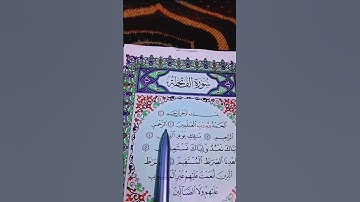 سُورَةُ الْفَاتِحَةِ
بِسْمِ اللَّهِ الرَّحْمَٰنِ الرَّحِيمِ ١
الْحَمْدُ لِلَّهِ رَبِّ الْعَالَمِينَ ٢ الرَّحْمَٰنِ
الرَّحِيمِ ٣ مَالِكِ يَوْمِ الدِّينِ ٤
إِيَّاكَ نَعْبُدُ وَإِيَّاكَ نَسْتَعِينُ ٥
اهْدِنَا الصِّرَاطَ الْمُسْتَقِيمَ ٦ صِرَاطَ
الَّذِينَ أَنْعَمْتَ عَلَيْهِمْ غَيْرِ الْمَغْضُوبِ
عَلَيْهِمْ وَلَا الضَّالِّينَ